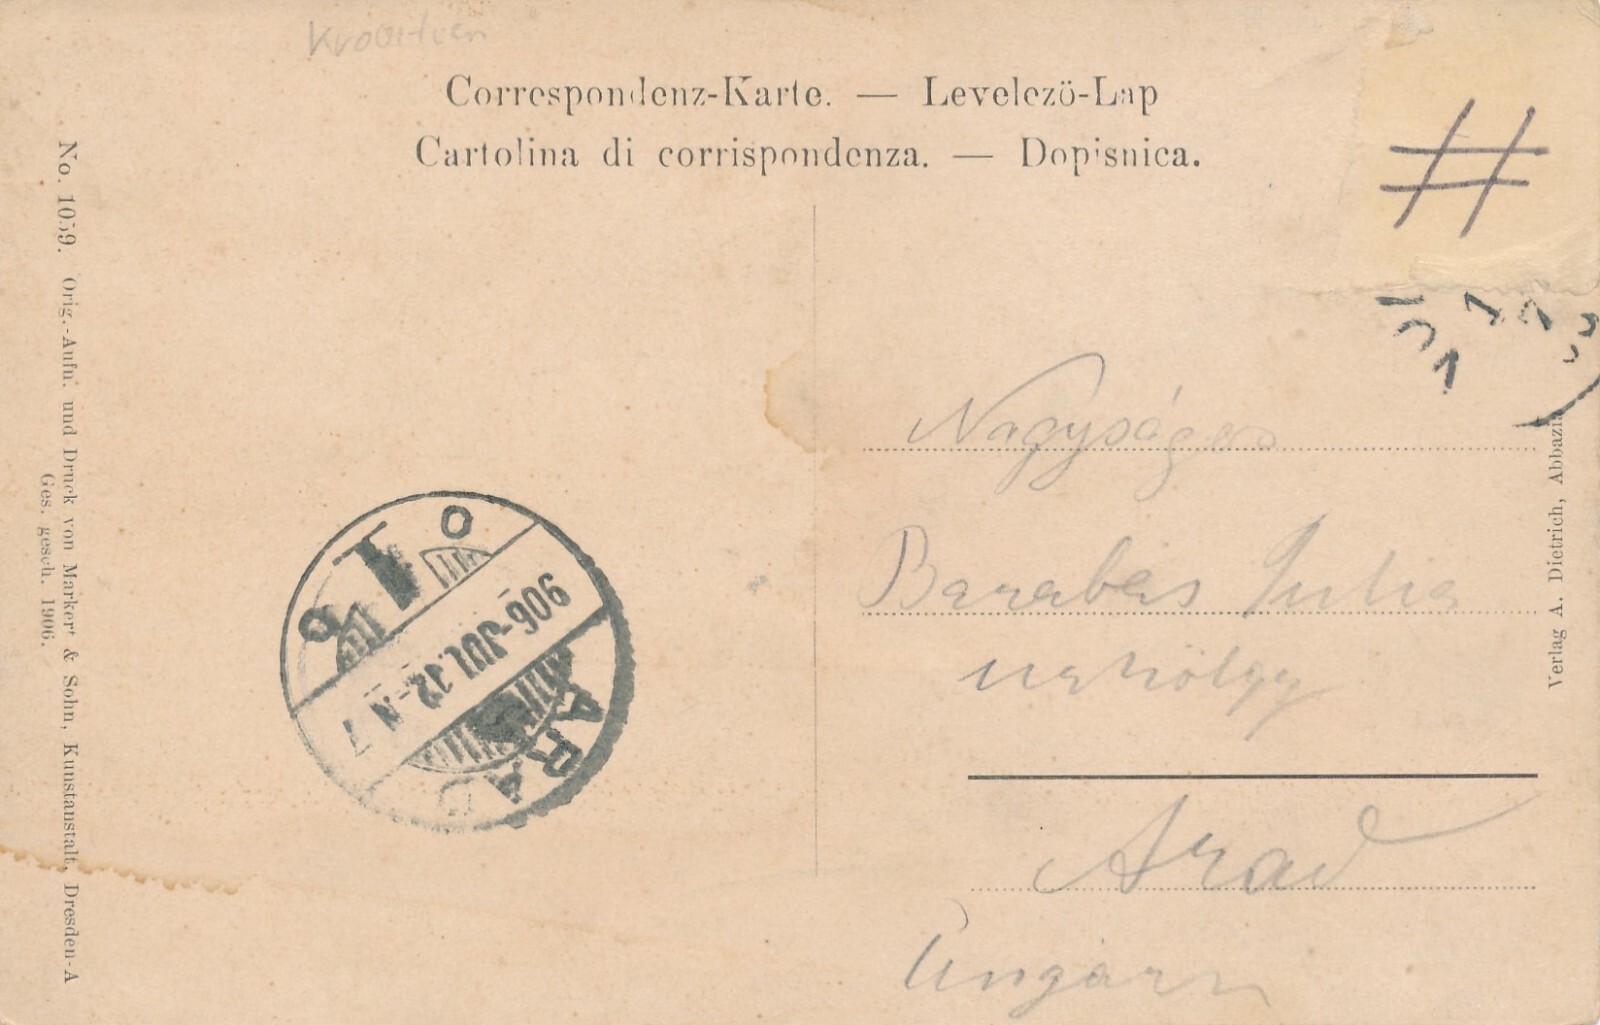 Kroatien
Correspondenz-Karte. — Levelező-Lap
Cartolina di corrispondenza. — Dopisnica.
No. 1059. Orig.-Aufn. und Druck von Markert & Sohn, Kunstanstalt, Dresden-A
Ges. gesch. 1906.
906-JUL.12-N7
ARAD
Nagyságos
Barabás Julia
urhölgy
Arad
Ungarn
Verlag A. Dietrich, Abbazia